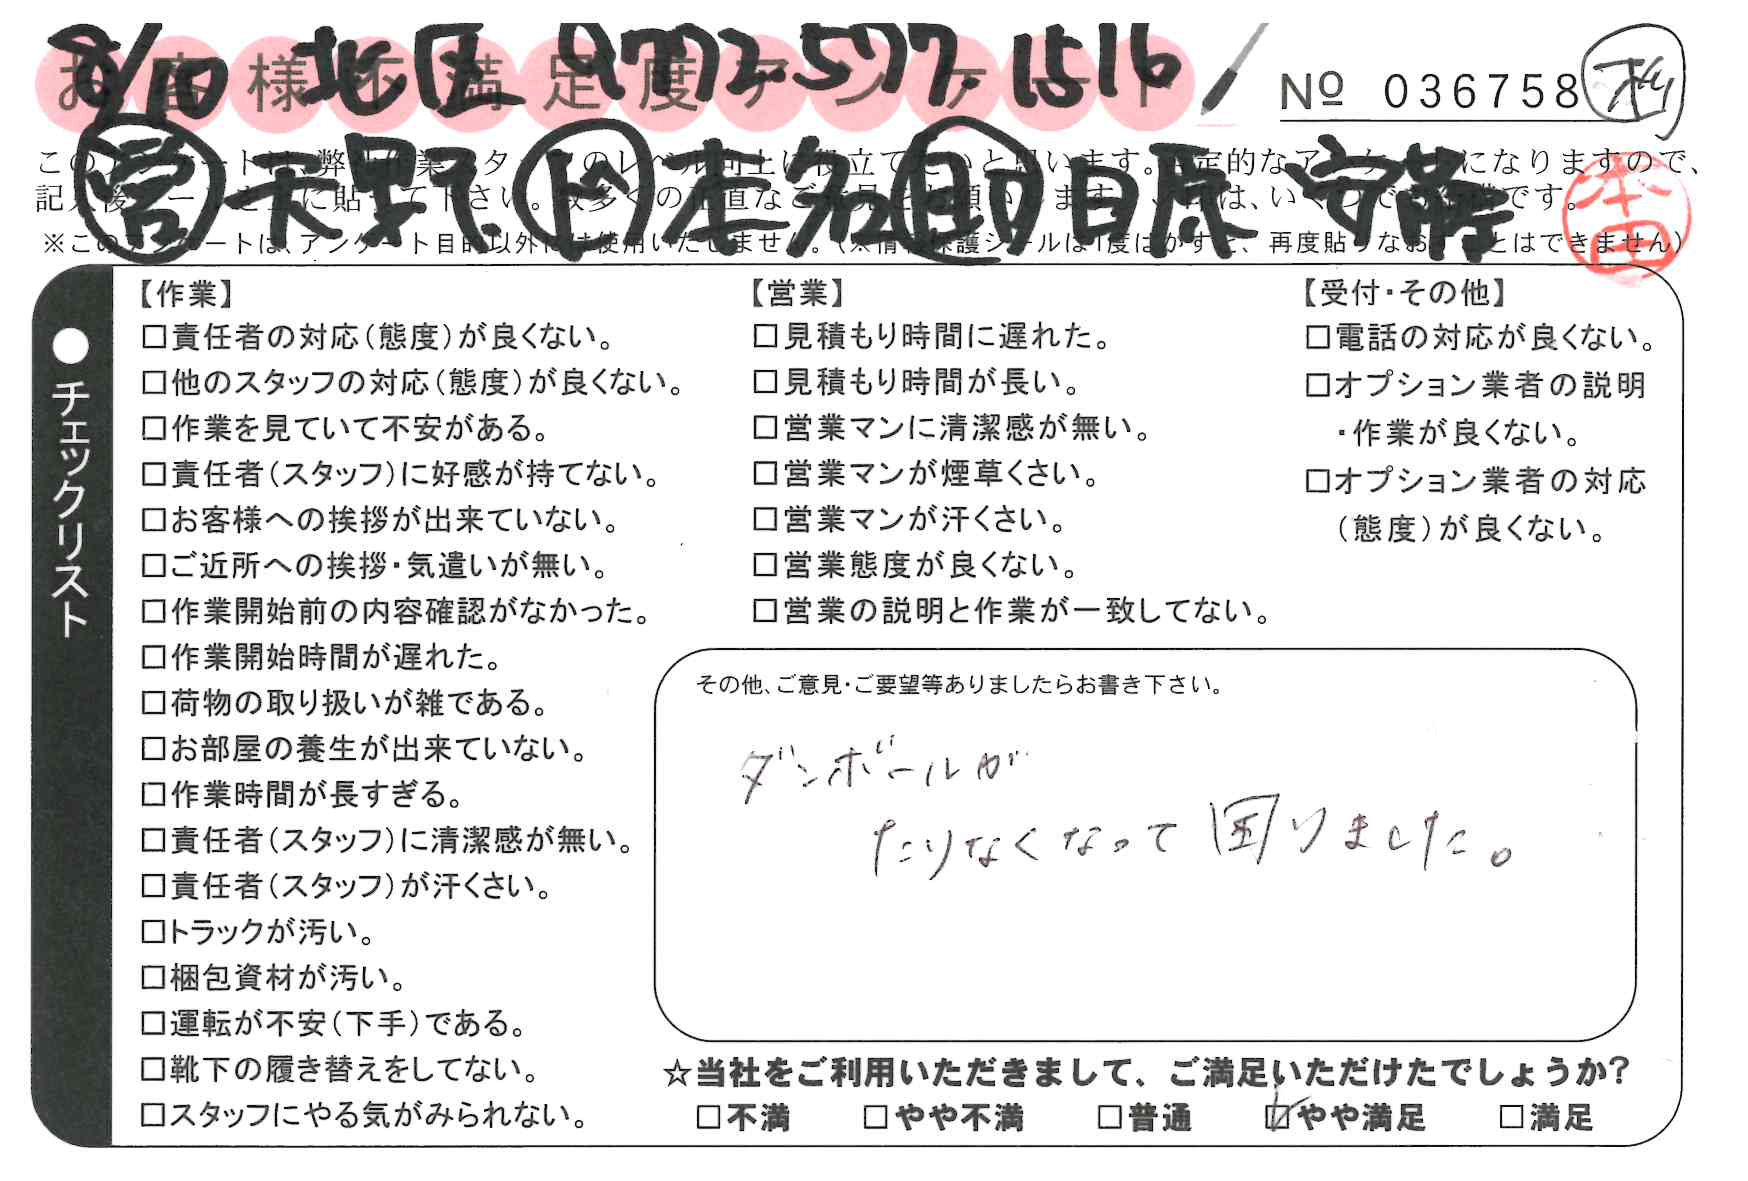 8/10 北区 9772.577.1516
お客様不満足度アンケート
№ 036758
営 天野 ト 本名 助 日原 安藤
本田
このアンケートは、弊社作業スタッフのレベル向上に役立てたいと思います。
※このアンケートは、アンケート目的以外には使用いたしません。(※情報保護シールは1度はがすと、再度貼りなおすことはできません)
●チェックリスト
【作業】
□責任者の対応(態度)が良くない。
□他のスタッフの対応(態度)が良くない。
□作業を見ていて不安がある。
□責任者(スタッフ)に好感が持てない。
□お客様への挨拶が出来ていない。
□ご近所への挨拶・気遣いが無い。
□作業開始前の内容確認がなかった。
□作業開始時間が遅れた。
□荷物の取り扱いが雑である。
□お部屋の養生が出来ていない。
□作業時間が長すぎる。
□責任者(スタッフ)に清潔感が無い。
□責任者(スタッフ)が汗くさい。
□トラックが汚い。
□梱包資材が汚い。
□運転が不安(下手)である。
□靴下の履き替えをしてない。
□スタッフにやる気がみられない。
【営業】
□見積もり時間に遅れた。
□見積もり時間が長い。
□営業マンに清潔感が無い。
□営業マンが煙草くさい。
□営業マンが汗くさい。
□営業態度が良くない。
□営業の説明と作業が一致してない。
【受付・その他】
□電話の対応が良くない。
□オプション業者の説明
・作業が良くない。
□オプション業者の対応
(態度)が良くない。
その他、ご意見・ご要望等ありましたらお書き下さい。
ダンボールが
たりなくなって困りました。
☆当社をご利用いただきまして、ご満足いただけたでしょうか?
□不満 □やや不満 □普通 ☑やや満足 □満足